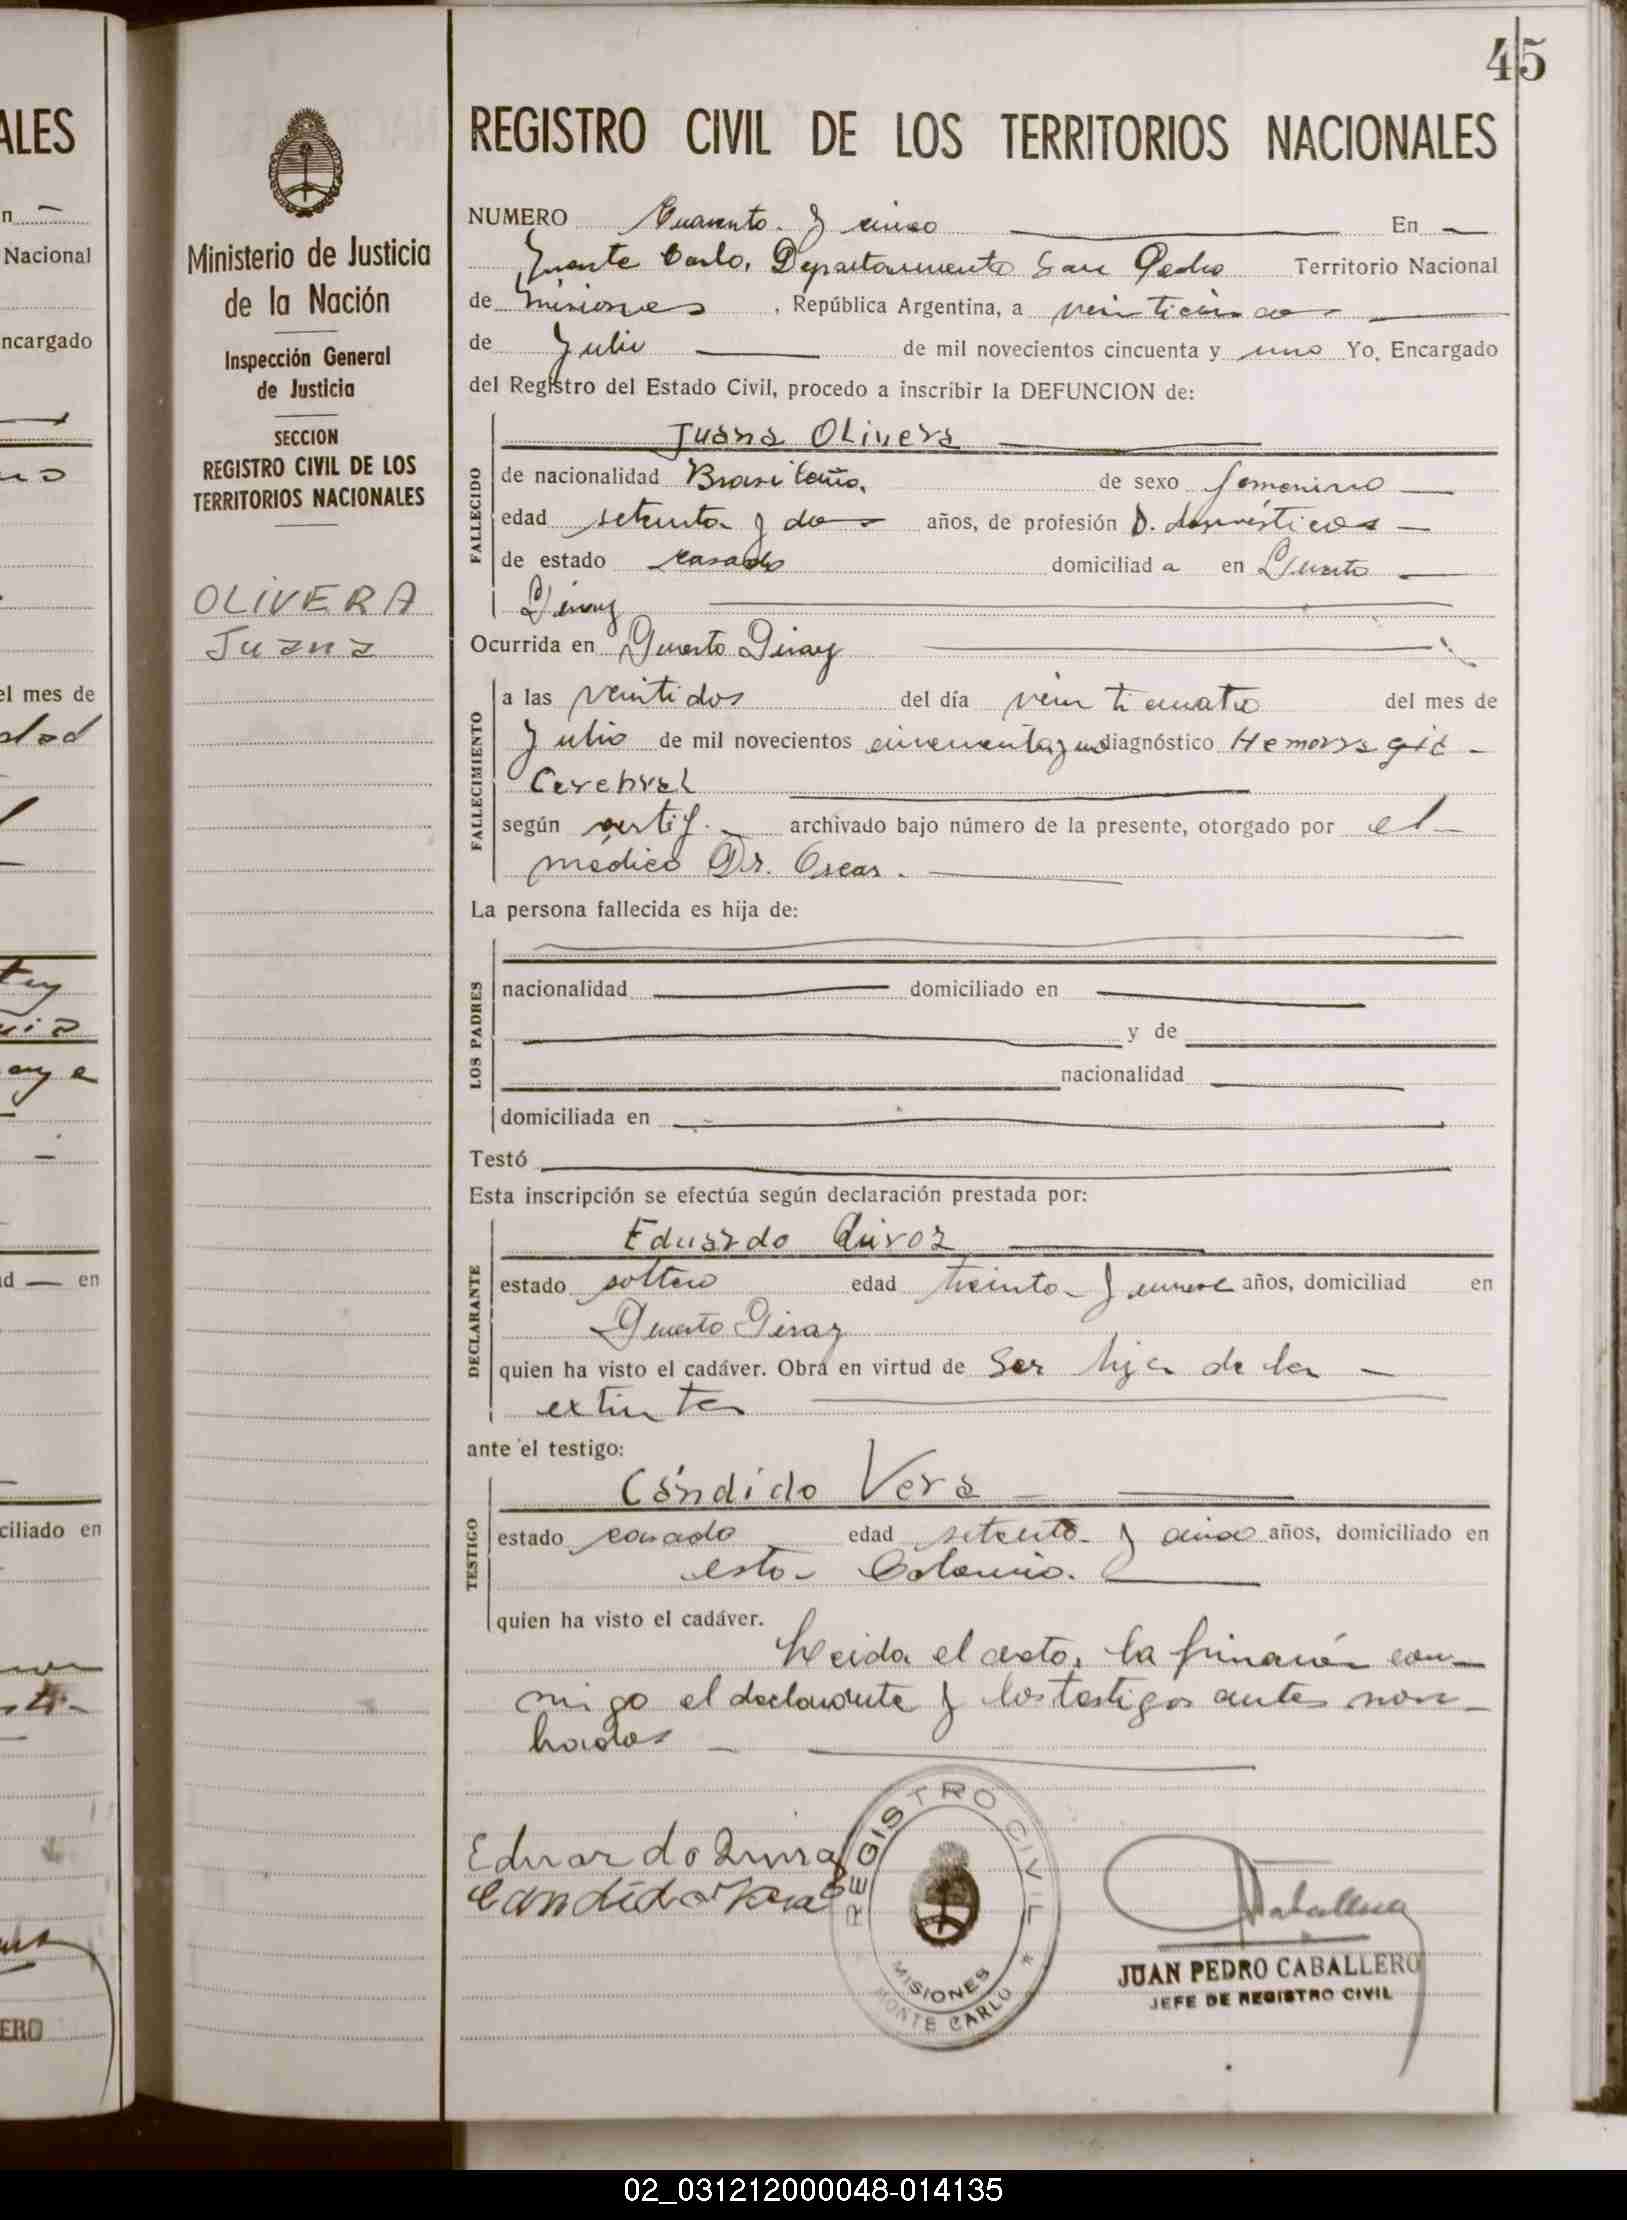 45
ALES
n
Nacional
ncargado
el mes de
d — en
ciliado en
ERO
Ministerio de Justicia
de la Nación
Inspección General
de Justicia
SECCION
REGISTRO CIVIL DE LOS
TERRITORIOS NACIONALES
OLIVERA
Juana
REGISTRO CIVIL DE LOS TERRITORIOS NACIONALES
NUMERO Cuarenta y cinco En
Monte Carlo, Departamento San Pedro Territorio Nacional
de Misiones, República Argentina, a veinticinco
de Julio de mil novecientos cincuenta y uno Yo, Encargado
del Registro del Estado Civil, procedo a inscribir la DEFUNCION de:
FALLECIDO
Juana Olivera
de nacionalidad Brasileña, de sexo femenino
edad setenta y dos años, de profesión Q. domésticos
de estado casada domiciliad a en Puerto
Piray
Ocurrida en Puerto Piray
FALLECIMIENTO
a las veintidos del día veinticuatro del mes de
Julio de mil novecientos cincuenta y uno diagnóstico Hemorragia
Cerebral
según certif. archivado bajo número de la presente, otorgado por el
médico Dr. Oscar.
La persona fallecida es hija de:
LOS PADRES
nacionalidad domiciliado en
y de
nacionalidad
domiciliada en
Testó
Esta inscripción se efectúa según declaración prestada por:
DECLARANTE
Eduardo Quiroz
estado soltero edad treinta y nueve años, domiciliad en
Puerto Piray
quien ha visto el cadáver. Obra en virtud de ser hijo de la
extinta
ante el testigo:
TESTIGO
Cándido Vera
estado casado edad setenta y cinco años, domiciliado en
esta Colonia.
quien ha visto el cadáver.
Leida el acta, la firmarón con-
migo el declarante y los testigos antes nom-
brados
Eduardo Quiroz
Candido Vera
REGISTRO CIVIL
MISIONES
MONTE CARLO
Caballero
JUAN PEDRO CABALLERO
JEFE DE REGISTRO CIVIL
02_031212000048-014135